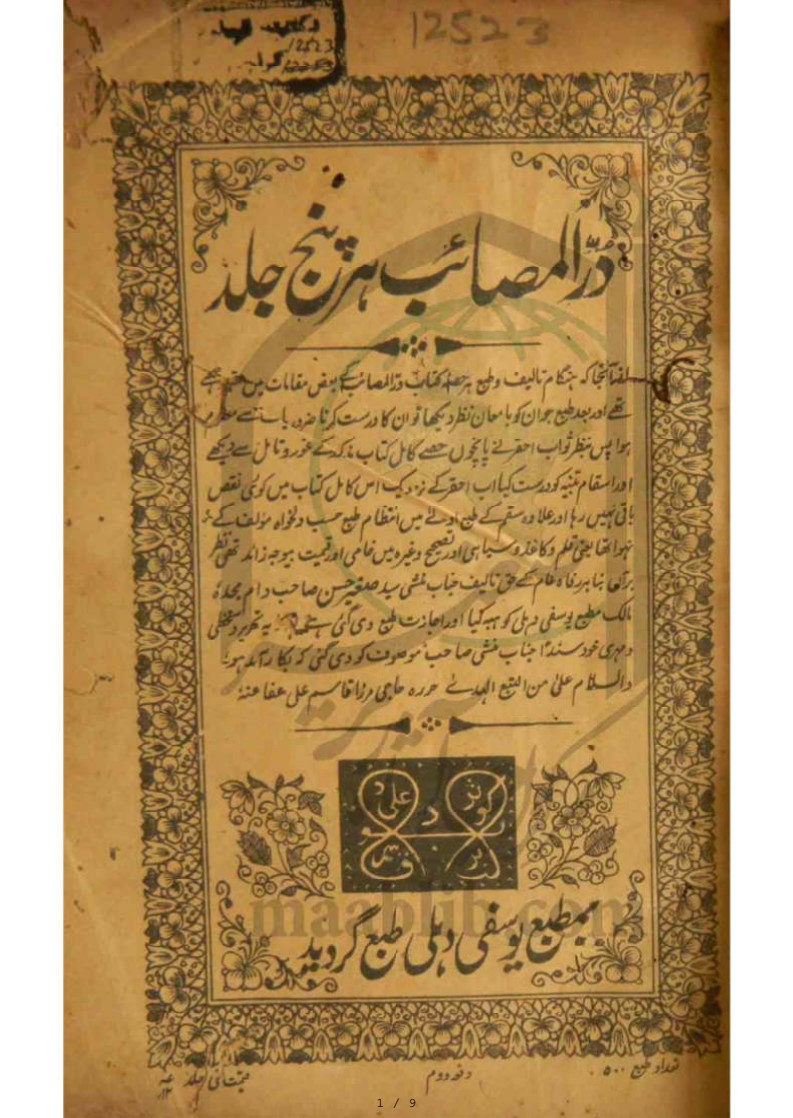 12523
12523
دُرّالمصائب ہر پنج جلد
ازآنجا کہ ہنگام تالیف وطبع ہر حصہ کتاب درالمصائب کے بعض مقامات میں
تھے اور بعد طبع جو ان کو بامعان نظر دیکھا تو ان کا درست کرنا ضرور
ہوا پس بنظر ثواب احقر نے پانچوں حصے کامل کتاب مذکور کے غور و تامل سے دیکھے
اور اسقام کو درست کیا اب احقر کے نزدیک اس کامل کتاب میں کوئی نقص
باقی نہیں رہا اور علاوہ سقم کے طبع اولے میں انتظام طبع حسب دلخواہ مؤلف کے
نہوا تھا یعنی قلم و کاغذ و سیاہی اور تصحیح وغیرہ میں خامی اور قیمت بوجہ زائد تھی نظر
برآں بنابر رفاہ عام کے حق تالیف جناب منشی سید صغیر حسن صاحب دام مجدہٗ
مالک مطبع یوسفی دہلی کو ہبہ کیا اور اجازت طبع دی گئی یہ تحریر دستخطی
و مہری خود سنداً جناب منشی صاحب موصوف کو دی گئی کہ بکار آمد ہو
والسلام علیٰ من اتبع الہدےٰ حررہ حاجی مرزا قاسم علی عفا عنہٗ
بمطبع یوسفی دہلی طبع گردید
تعداد طبع ۵۰۰
دفعہ دوم
قیمت فی جلد
maablib.com
1 / 9